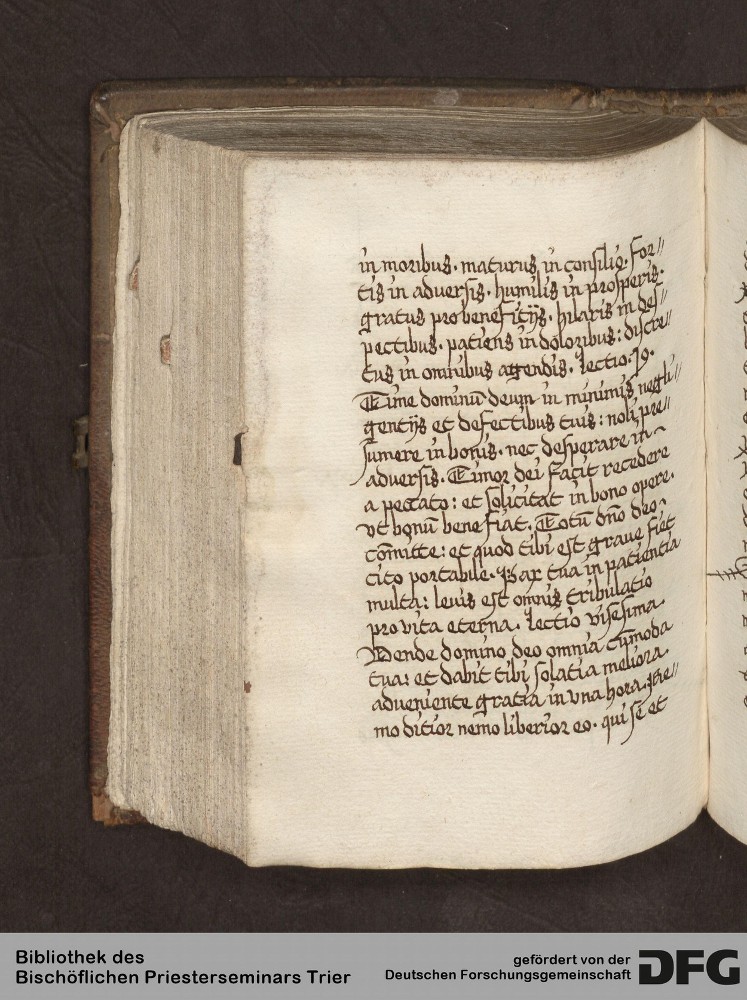 in moribus. maturus in consilio. for//
tis in adversis. humilis in prosperis.
gratus pro benefitijs. hilaris in des//
pectibus. patiens in doloribus: discre//
tus in omnibus agendis. Lectio. 19.
Time dominū deum in minimis negli//
gentijs et defectibus tuis: noli pre//
sumere in bonis. nec desperare in
adversis. Timor dei facit recedere
a peccato: et solicitat in bono opere.
vt bonū bene fiat. Totū dn̄o deo
com̄itte: et quod tibi est grave fiet
cito portabile. Pax tua in patientia
multa: levis est omnis tribulatio
pro vita eterna. Lectio visesima
Pende domino deo omnia cūmoda
tua: et dabit tibi solatia meliora.
adveniente gratia in vna hora. Ne//
mo ditior nemo liberior eo. qui se et
Bibliothek des
Bischöflichen Priesterseminars Trier
gefördert von der
Deutschen Forschungsgemeinschaft DFG